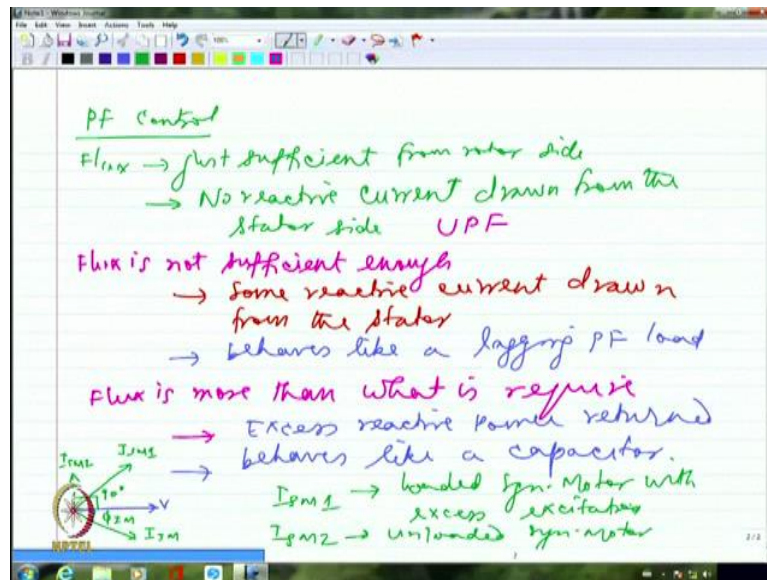 Note1 - Windows Journal
File Edit View Insert Actions Tools Help
100%
PF Control
Flux → Just sufficient from rotor side
→ No reactive current drawn from the
stator side UPF
Flux is not sufficient enough
→ Some reactive current drawn
from the stator
→ behaves like a lagging PF load
Flux is more than what is require
→ Excess reactive power returned
→ behaves like a capacitor.
ISM2 ISM1
90°
V
ΦIM
IIM
ISM1 → loaded Syn. Motor with
excess excitation
ISM2 → unloaded syn. motor
NPTEL
2/2